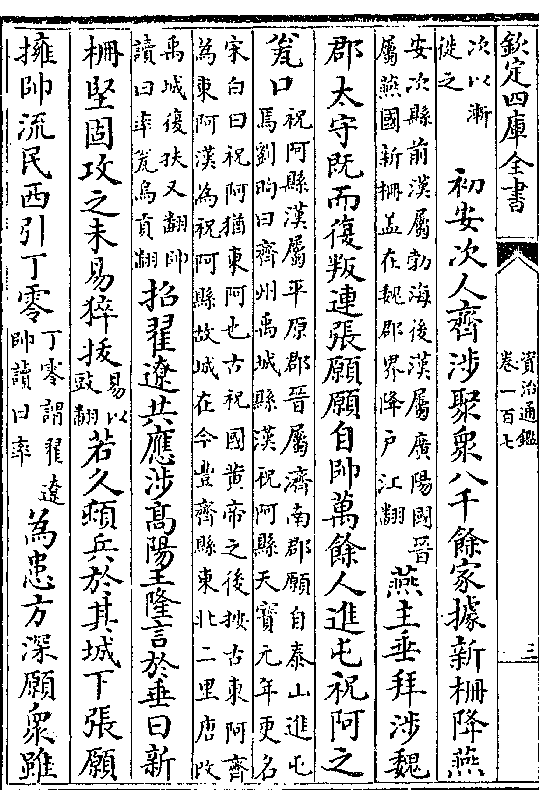 欽定四庫全書
資治通鑑
卷一百七
三
次以漸
徙之
初安次人齊涉聚衆八千餘家據新柵降燕
安次縣前漢屬勃海後漢屬廣陽國晉
屬燕國新柵蓋在魏郡界降戶江翻
燕主垂拜涉魏
郡太守既而復叛連張願願自帥萬餘人進屯祝阿之
瓮口
祝阿縣漢屬平原郡晉屬濟南郡願自泰山進屯
焉劉昫曰齊州禹城縣漢祝阿縣天寶元年更名
宋白曰祝阿猶東阿也古祝國黄帝之後按古東阿齊
為東阿漢為祝阿縣故城在今豐齊縣東北二里唐改
禹城復扶又翻帥
讀曰率瓮烏貢翻
招翟遼共應涉高陽王隆言於垂曰新
柵堅固攻之未易猝拔
易以
豉翻
若久頓兵於其城下張願
擁帥流民西引丁零
丁零謂翟遼
帥讀曰率
為患方深願衆雖